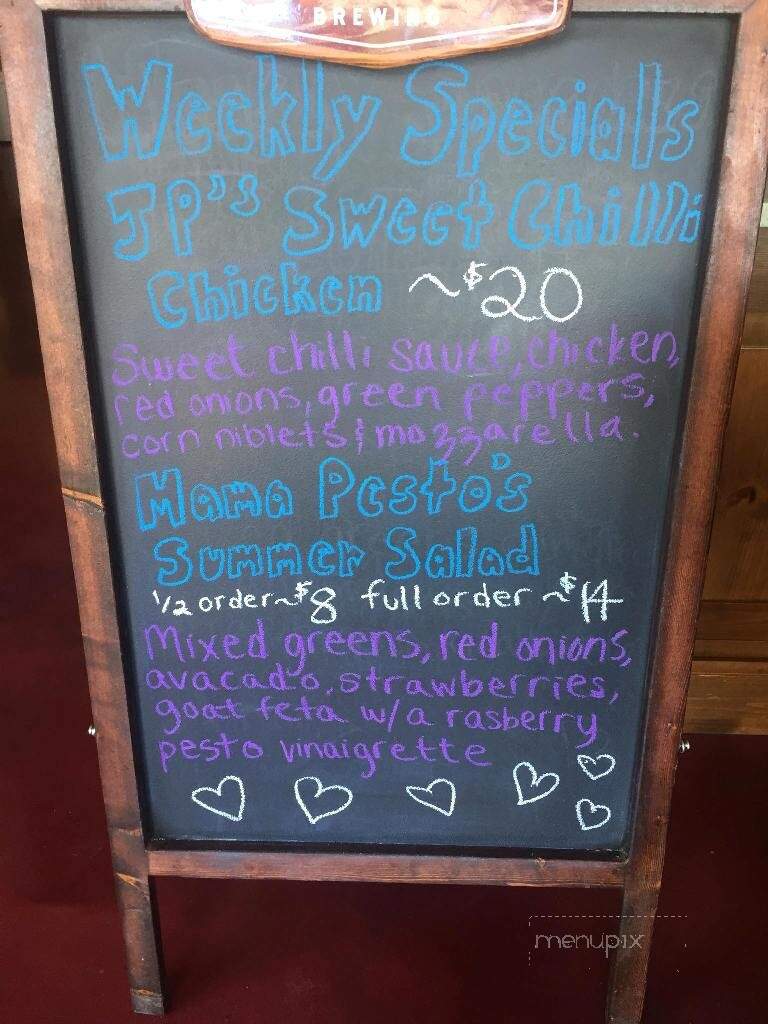 BREWING
Weekly Specials
JP's Sweet Chilli
Chicken ~$20
Sweet chilli sauce, chicken,
red onions, green peppers,
corn niblets & mozzarella.
Mama Pesto's
Summer Salad
1/2 order ~$8 full order ~$14
Mixed greens, red onions,
avacado, strawberries,
goat feta w/a rasberry
pesto vinaigrette
menupix